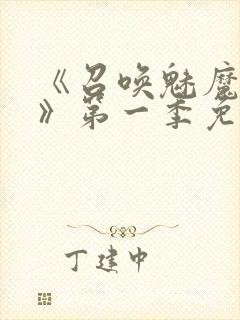 《召唤魅魔
》第一季免
丁建中